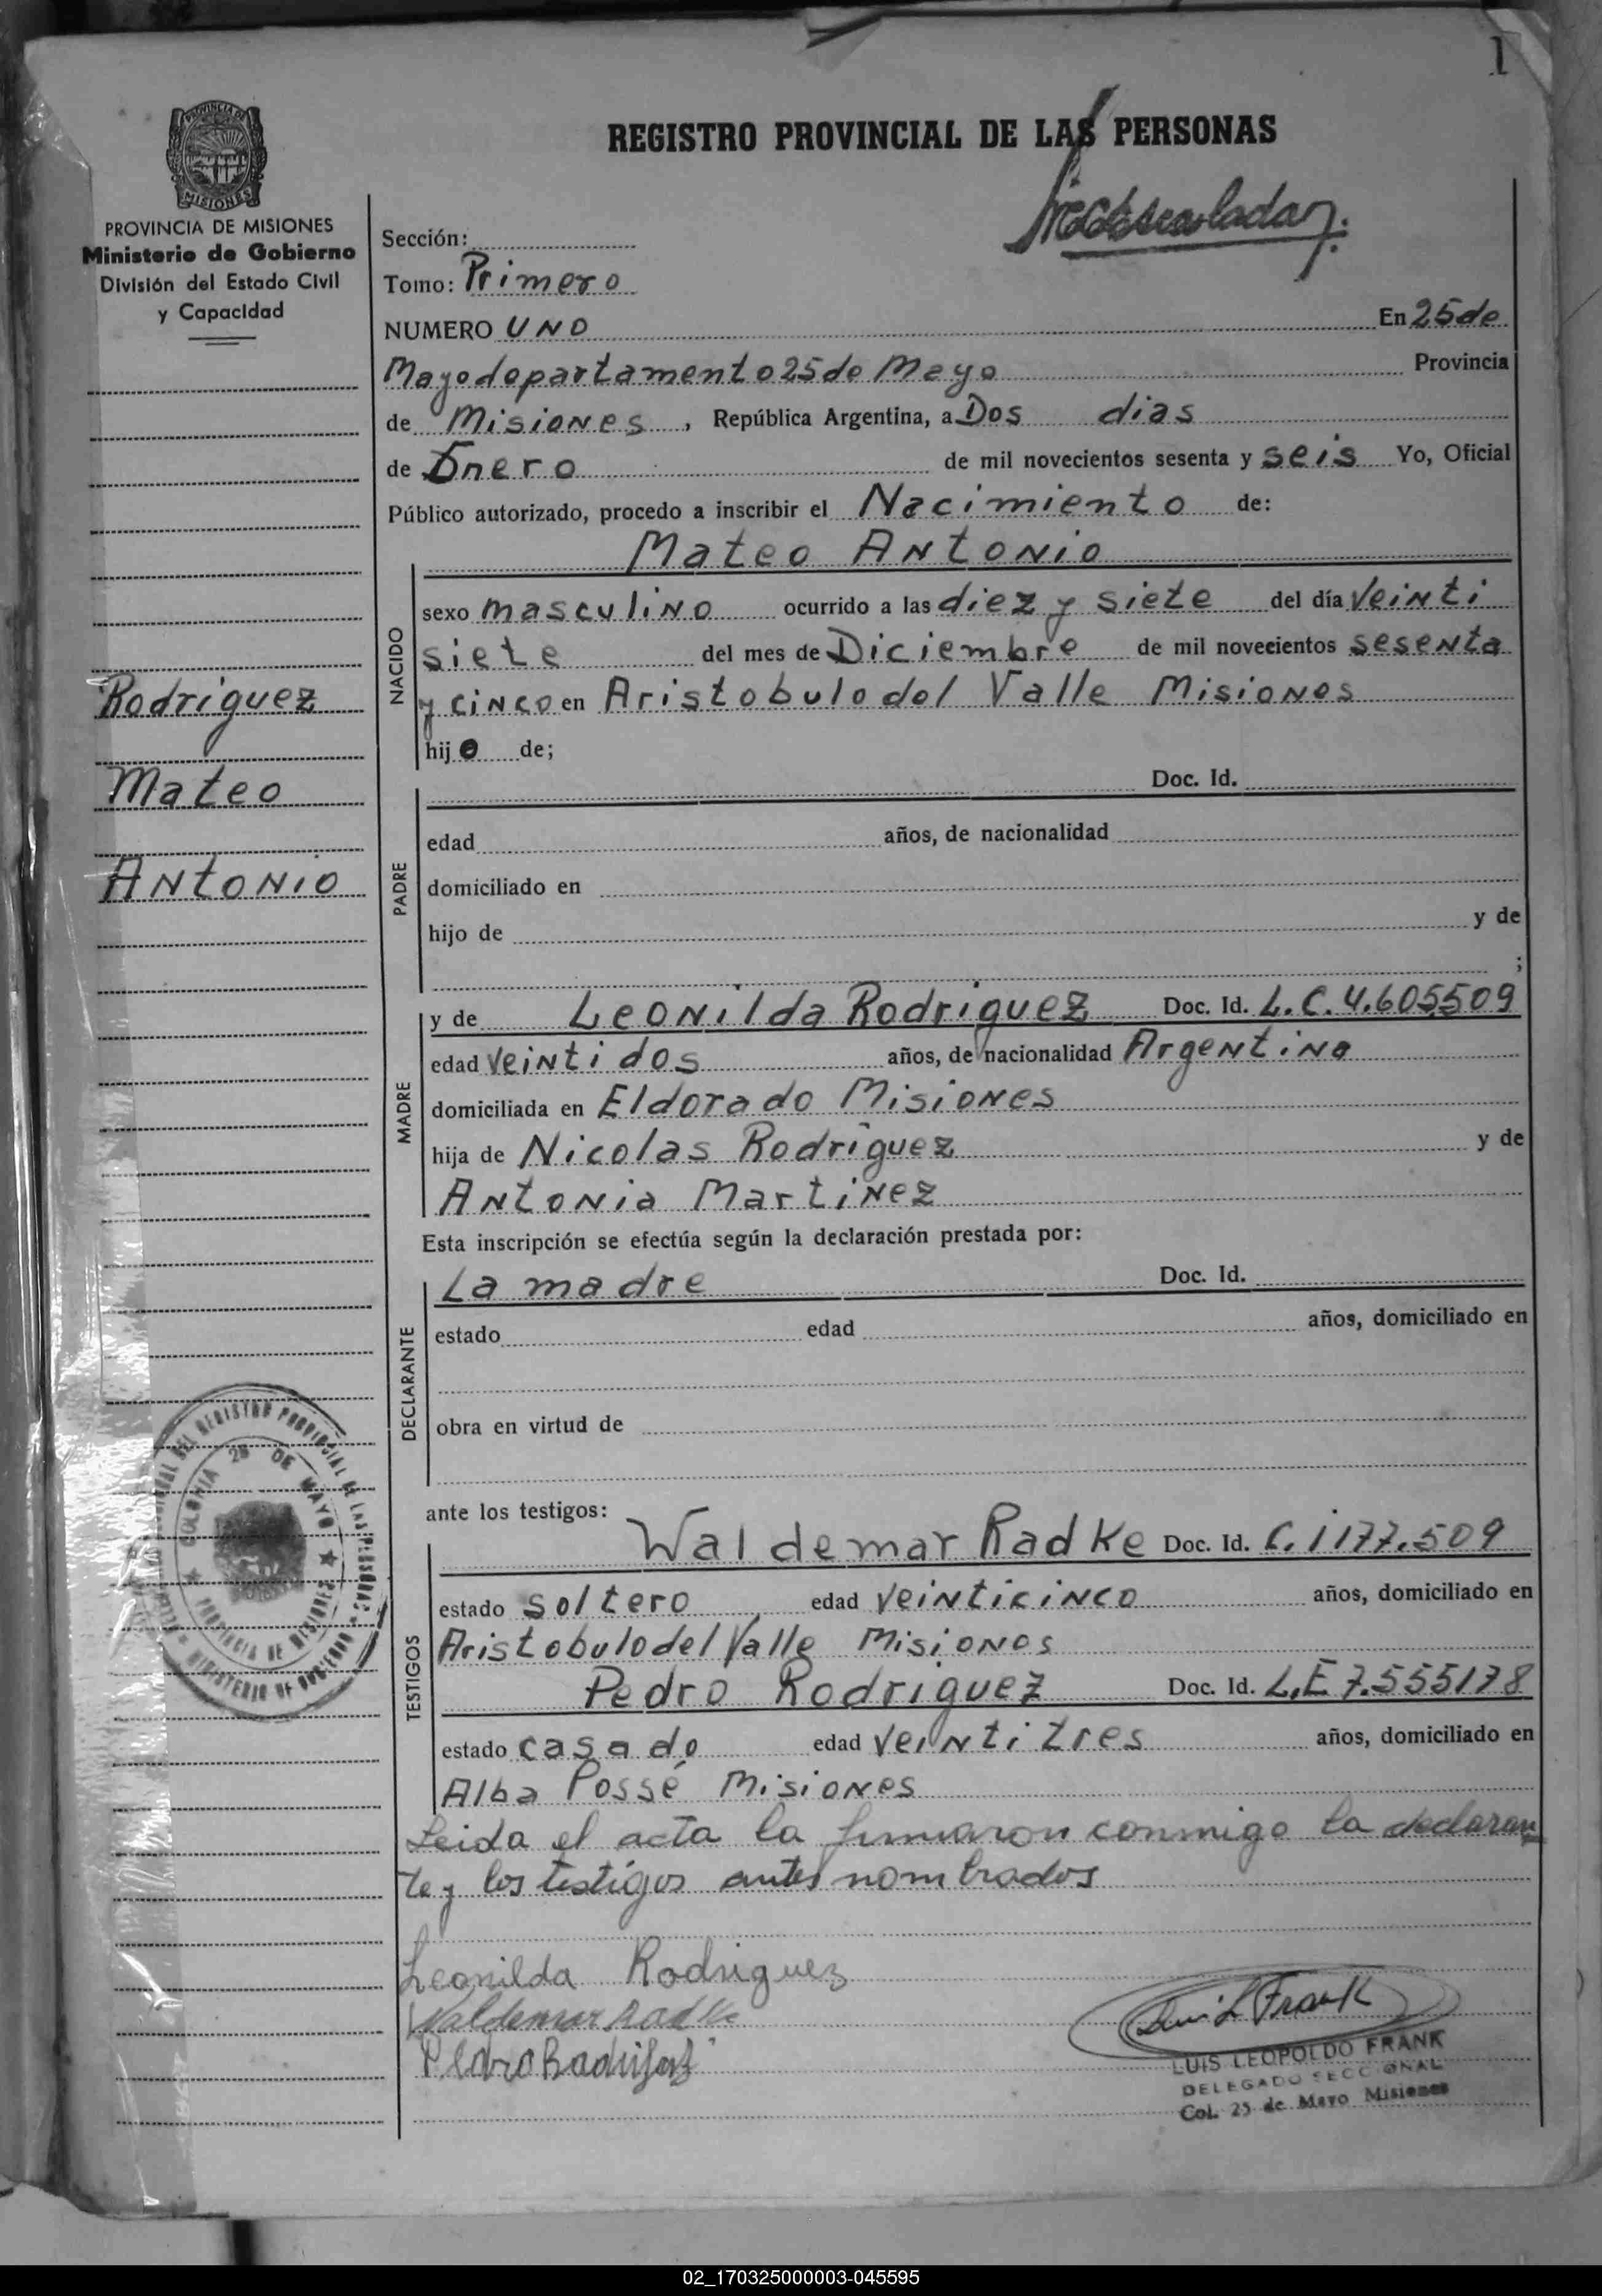 1
REGISTRO PROVINCIAL DE LAS PERSONAS
PROVINCIA DE MISIONES
MISIONES
PROVINCIA DE MISIONES
Ministerio de Gobierno
División del Estado Civil
y Capacidad
Rodriguez
Mateo
Antonio
Sección:
Tomo: Primero
NUMERO UNO En 25 de
Mayo departamento 25 de Mayo Provincia
de Misiones, República Argentina, a Dos dias
de Enero de mil novecientos sesenta y seis Yo, Oficial
Público autorizado, procedo a inscribir el Nacimiento de:
Mateo Antonio
NACIDO
sexo masculino ocurrido a las diez y siete del día Veinti
siete del mes de Diciembre de mil novecientos sesenta
y cinco en Aristobulo del Valle Misiones
hijo de;
PADRE
Doc. Id.
edad años, de nacionalidad
domiciliado en
hijo de y de
;
MADRE
y de Leonilda Rodriguez Doc. Id. L.C. 4.605509
edad Veinti dos años, de nacionalidad Argentina
domiciliada en Eldorado Misiones
hija de Nicolas Rodriguez y de
Antonia Martinez
Esta inscripción se efectúa según la declaración prestada por:
DECLARANTE
La madre Doc. Id.
estado edad años, domiciliado en
obra en virtud de
ante los testigos:
TESTIGOS
Waldemar Radke Doc. Id. C.I 177.509
estado soltero edad Veinticinco años, domiciliado en
Aristobulo del Valle Misiones
Pedro Rodriguez Doc. Id. L.E 7.555178
estado casado edad Veinti tres años, domiciliado en
Alba Possé Misiones
Leida el acta la firmaron conmigo la declaran
te y los testigos antes nombrados
Leonilda Rodriguez
Waldemar Radke
Luis L Frank
LUIS LEOPOLDO FRANK
DELEGADO SECCIONAL
Col. 25 de Mayo Misiones
REGISTRO PROVINCIAL DE LAS PERSONAS
MINISTERIO DE GOBIERNO
COLONIA 25 DE MAYO
PROVINCIA DE MISIONES
02_170325000003-045595